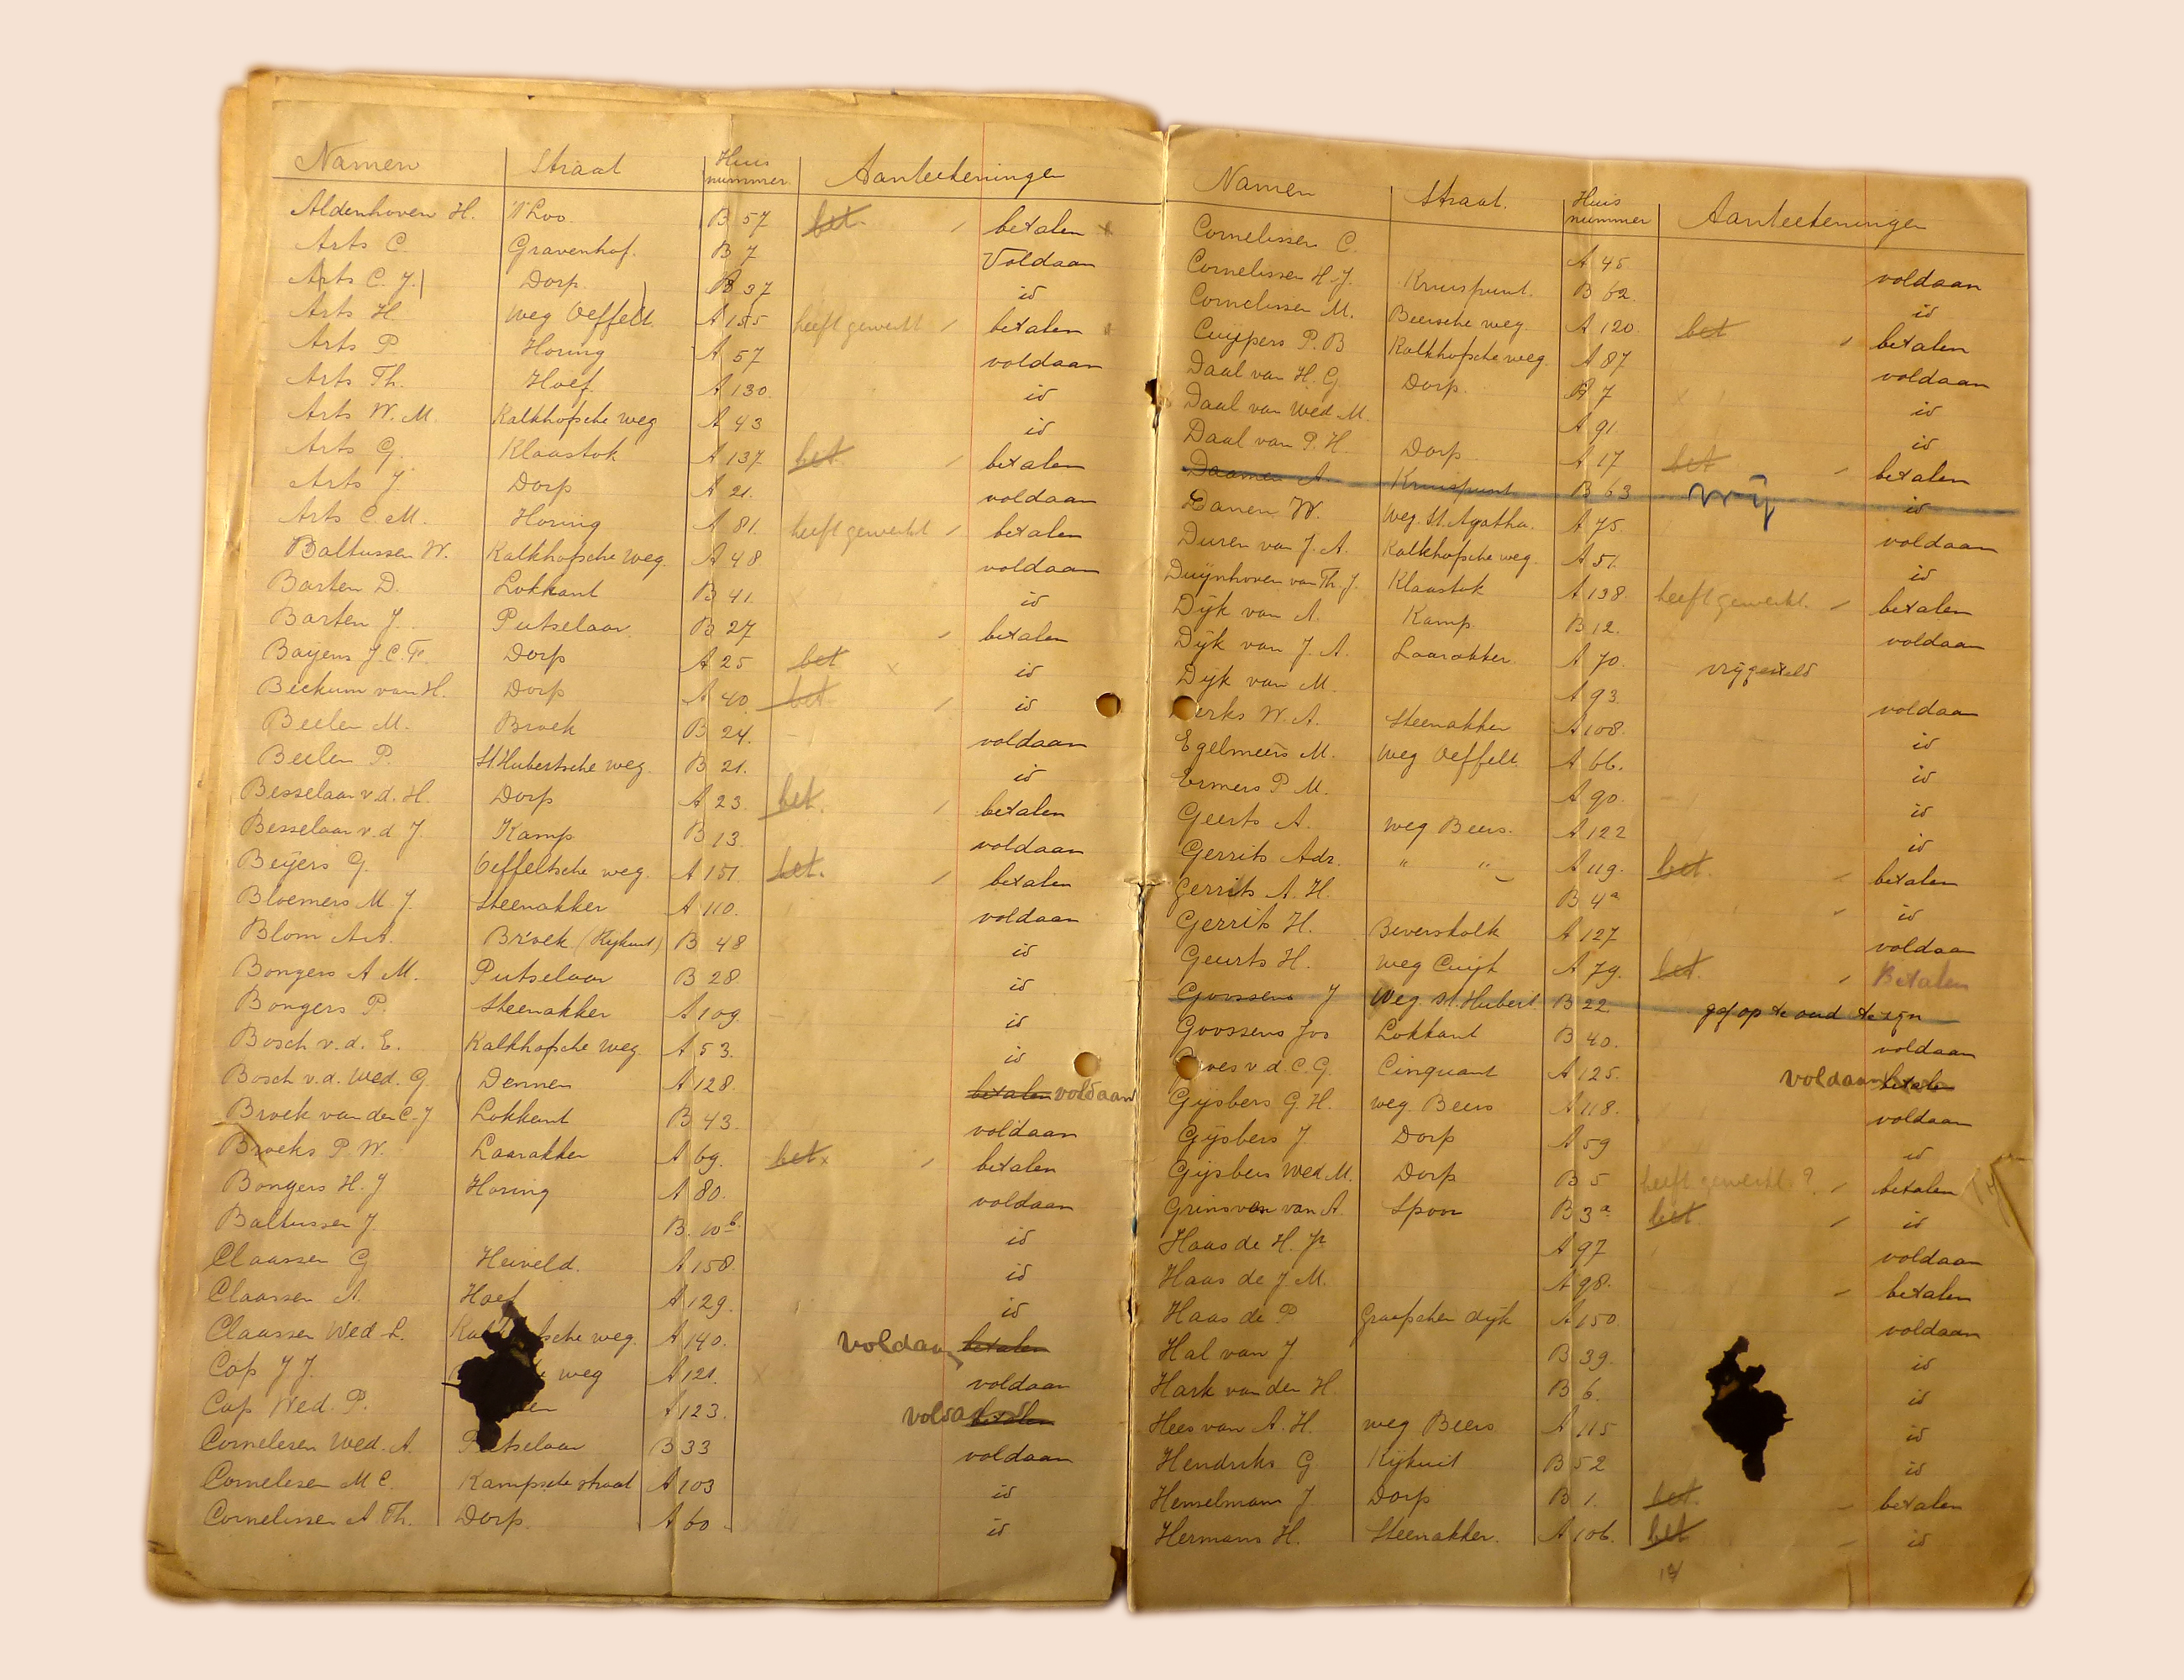 Namen Straat Huis nummer Aanteekeningen
Aldenhoven H. 't Loo. B 57 bet. betalen
Arts C. Gravenhof. B 7 Voldaan
Arts C. J. Dorp. B 37 id
Arts H. Weg Oeffelt. A 155 heeft gewerkt betalen
Arts P. Horing A 57 voldaan
Arts Th. Hoef. A 130. id
Arts W. M. Kalkhofsche weg A 43 id
Arts G. Klaastok A 137 bet betalen
Arts J. Dorp A 21. voldaan
Arts C. M. Horing A 81. heeft gewerkt betalen
Baltussen W. Kalkhofsche weg. A 48 voldaan
Barten D. Lokkant B 41. id
Barten J. Putselaar B 27 betalen
Bayens J. C. F. Dorp A 25 bet x id
Beckum van H. Dorp A 40 bet id
Beelen M. Broek B 24. voldaan
Beelen P. St Hubertsche weg. B 21. id
Besselaar v.d. H. Dorp A 23. bet. betalen
Besselaar v.d. J. Kamp B 13. voldaan
Beijers G. Oeffeltsche weg. A 151. bet. betalen
Bloemers M. J. Steenakker A 110. voldaan
Blom A.A. Broek (Kijkuit) B 48 id
Bongers A M. Putselaar B 28 id
Bongers P. Steenakker A 109. id
Bosch v.d. E. Kalkhofsche weg. A 53. id
Bosch v.d. Wed. G Dennen A 128. betalen voldaan
Broek van den C. J Lokkant B 43. voldaan
Broeks P. W. Laarakker A 69. bet x betalen
Bongers H. J Horing A 80. voldaan
Baltussen J. B. 10 b. id
Claassen G Heiveld. A 158. id
Claassen A. Hoef A 129. id
Claassen Wed. L. sche weg. A 140. voldaan betalen
Cop J J. weg A 121. voldaan
Cop Wed. P. A 123. voldaan betalen
Cornelissen Wed. A. Putselaar B 33 voldaan
Cornelissen M C. Kampsche straat A 103 id
Cornelissen A Th. Dorp. A 60. id
Namen Straat. Huis nummer Aanteekeningen
Cornelissen C. A 45. voldaan
Cornelissen H. J. Kruispunt. B 62. id
Cornelissen M. Beersche weg. A 120. bet betalen
Cuijpers P. B Kalkhofsche weg. A 87 voldaan
Daal van H. G Dorp. B 7 id
Daal van Wed. M. A 91. id
Daal van P. H. Dorp A 17 bet betalen
Daamen A. Kruispunt B 63 vrij id
Danen W. Weg. St. Agatha. A 75. voldaan
Duren van J. A. Kalkhofsche weg. A 51. id
Duijnhoven van Th. J. Klaastok A 138. heeft gewerkt. betalen
Dijk van A. Kamp B 12. voldaan
Dijk van J. A. Laarakker A 70. vrijgesteld
Dijk van M. A 93. voldaan
Derks W. A. Steenakker A 108. id
Egelmeers M. Weg Oeffelt A 66. id
Ermers P M. A 90. id
Geerts A. weg Beers. A 122 id
Gerrits Adr. " " A 119. bet. betalen
Gerrits A. H. B 4a id
Gerrits H. Beverskolk A 127 voldaan
Geurts H. weg Cuijk A 79. bet. Betalen
Goossens J Weg. St. Hubert B 22. gaf op te oud te zijn
Goossens Jos Lokkant B 40. voldaan
v.d. C. G. Cinquant A 125. voldaan betalen
Gijsbers G. H. weg. Beers A 118. voldaan
Gijsbers J Dorp A 59 id
Gijsbers Wed M. Dorp B 5 heeft gewerkt.? betalen
Grinsven van A. Spoor B 3a bet id
Haas de H. Jr. A 97 voldaan
Haas de J. M. A 98. betalen
Haas de P Graafschen dijk A 150 voldaan
Hal van J B 39. id
Hark van der H. B 6. id
Hees van A. H. weg Beers A 115 id
Hendriks G. Kijkuit B 52 id
Henselmans J. Dorp B 1. bet. betalen
Hermans H. Steenakker. A 106. bet id